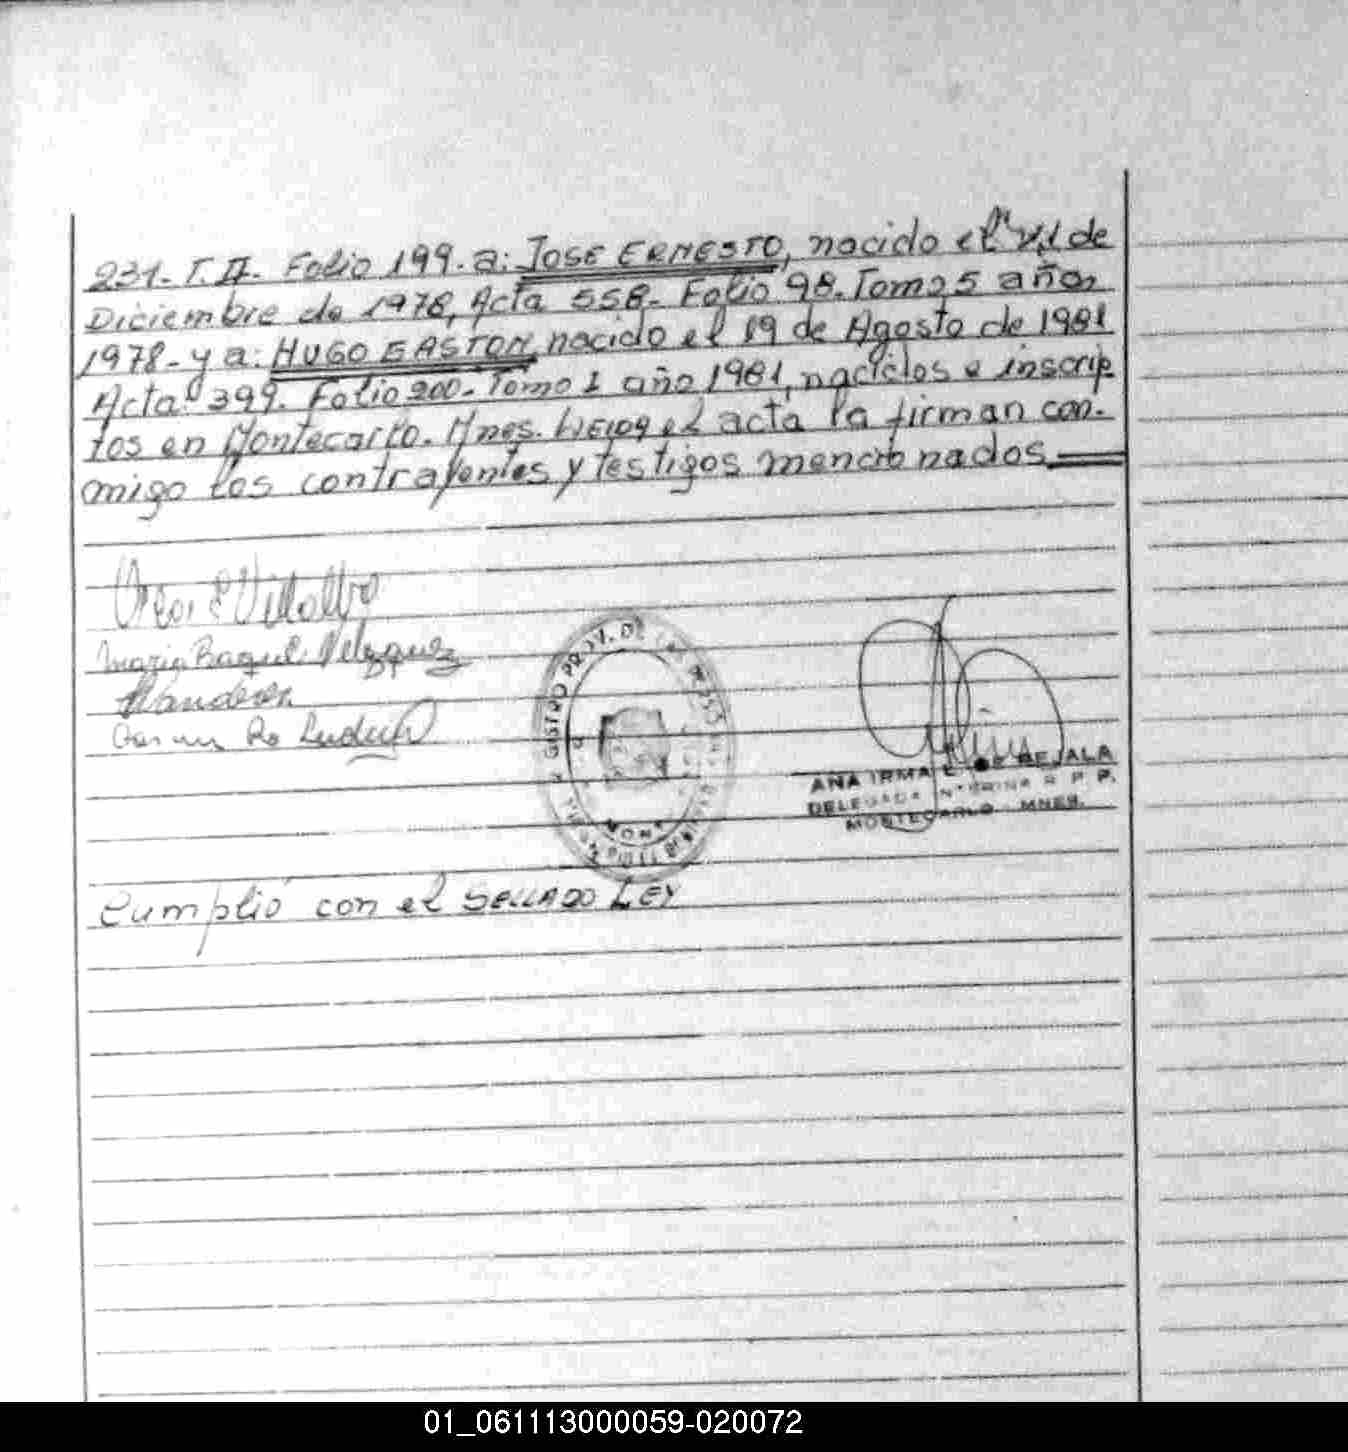 231- T. II. Folio 199. a: JOSE ERNESTO, nacido el de
Diciembre de 1978, Acta 558- Folio 98. Tomo 5 año
1978- y a: HUGO GASTON nacido el 19 de Agosto de 1981
Acta 399. Folio 200- Tomo 1 año 1981, nacidos e inscrip
tos en Montecarlo. Mnes. el acta la firman con-
migo los contrayentes y testigos mencionados
Villalba
Maria Raquel Velazquez
ANA IRMA DE BEJALA
DELEGADA INTERINA R P P.
MONTECARLO MNES.
Cumplió con el SELLADO LEY
01_061113000059-020072